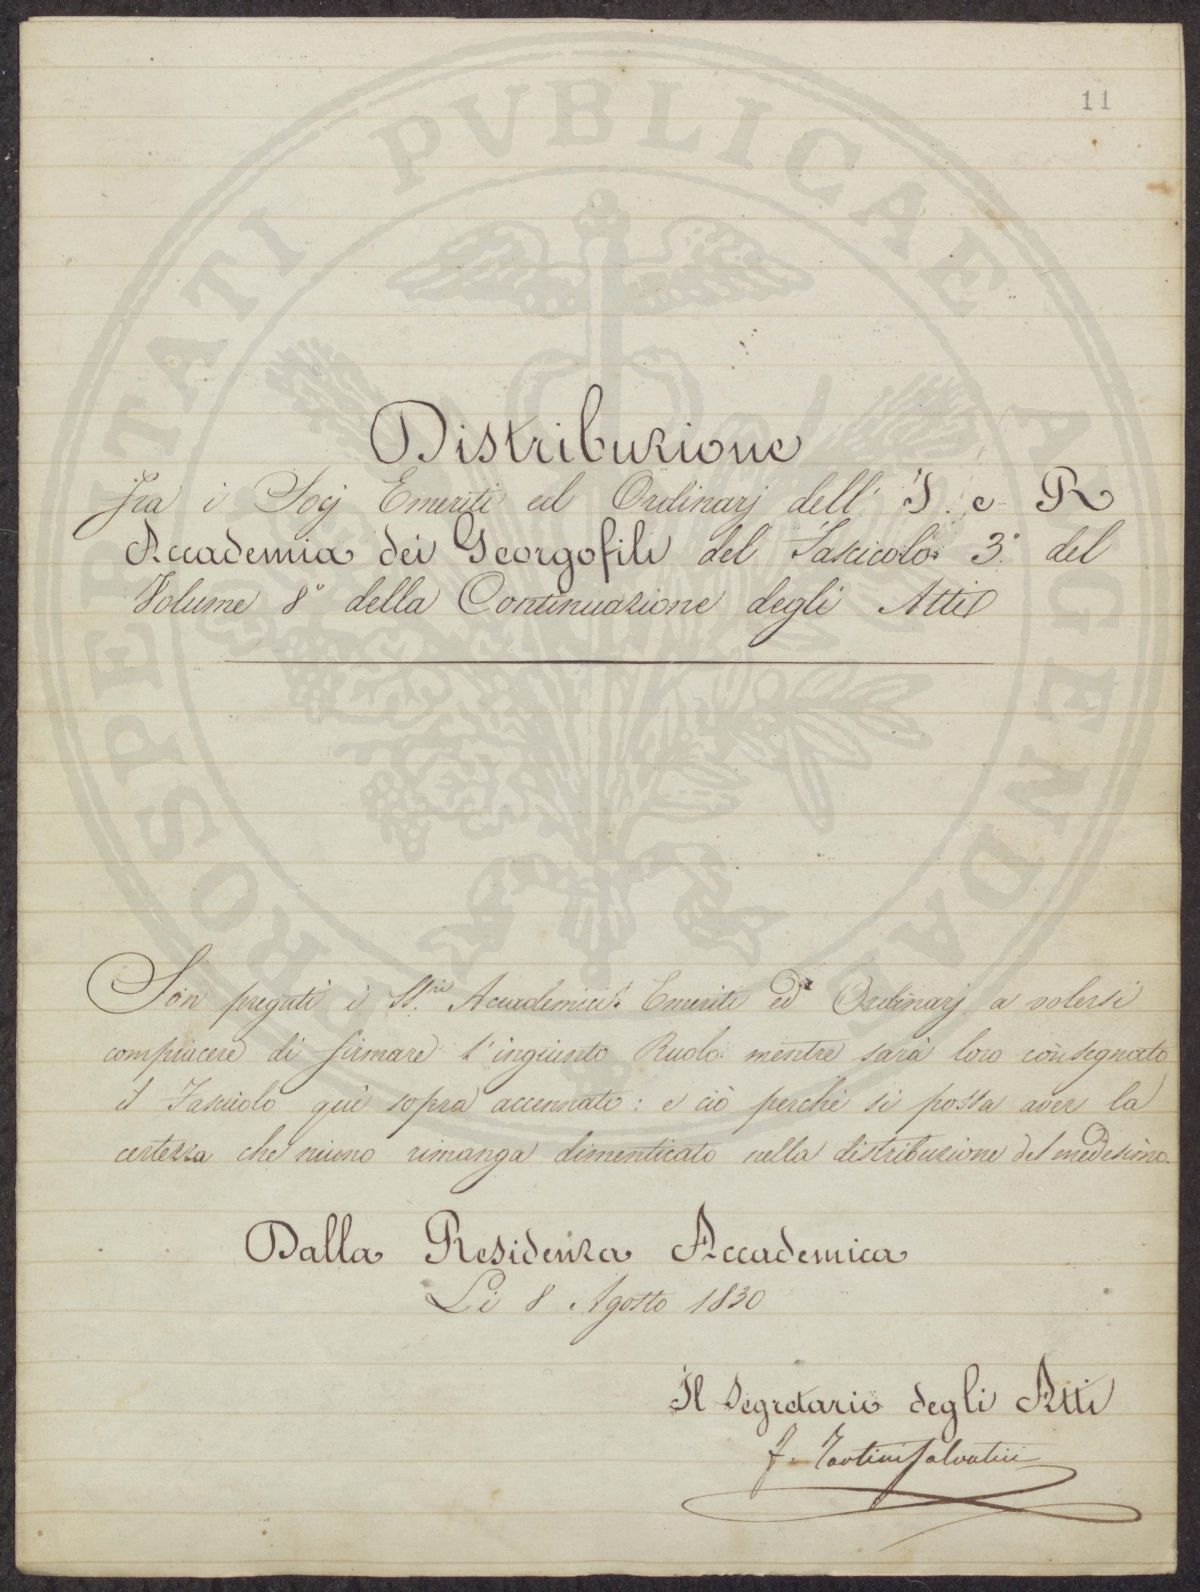 11
PROSPERITATI PVBLICAE AVGENDAE
Distribuzione
fra i Socj Emeriti ed Ordinarj dell' I. e R
Accademia dei Georgofili del Fascicolo 3.° del
Volume 8° della Continuazione degli Atti
Son pregati i SS.ri Accademici Emeriti ed Ordinarj a volersi
compiacere di firmare l'ingiunto Ruolo mentre sarà loro consegnato
il Fascicolo quì sopra accennato: e ciò perchè si possa aver la
certezza che niuno rimanga dimenticato nella distribuzione del medesimo.
Dalla Residenza Accademica
Li 8 Agosto 1830
Il Segretario degli Atti
F. Tartini Salvatici